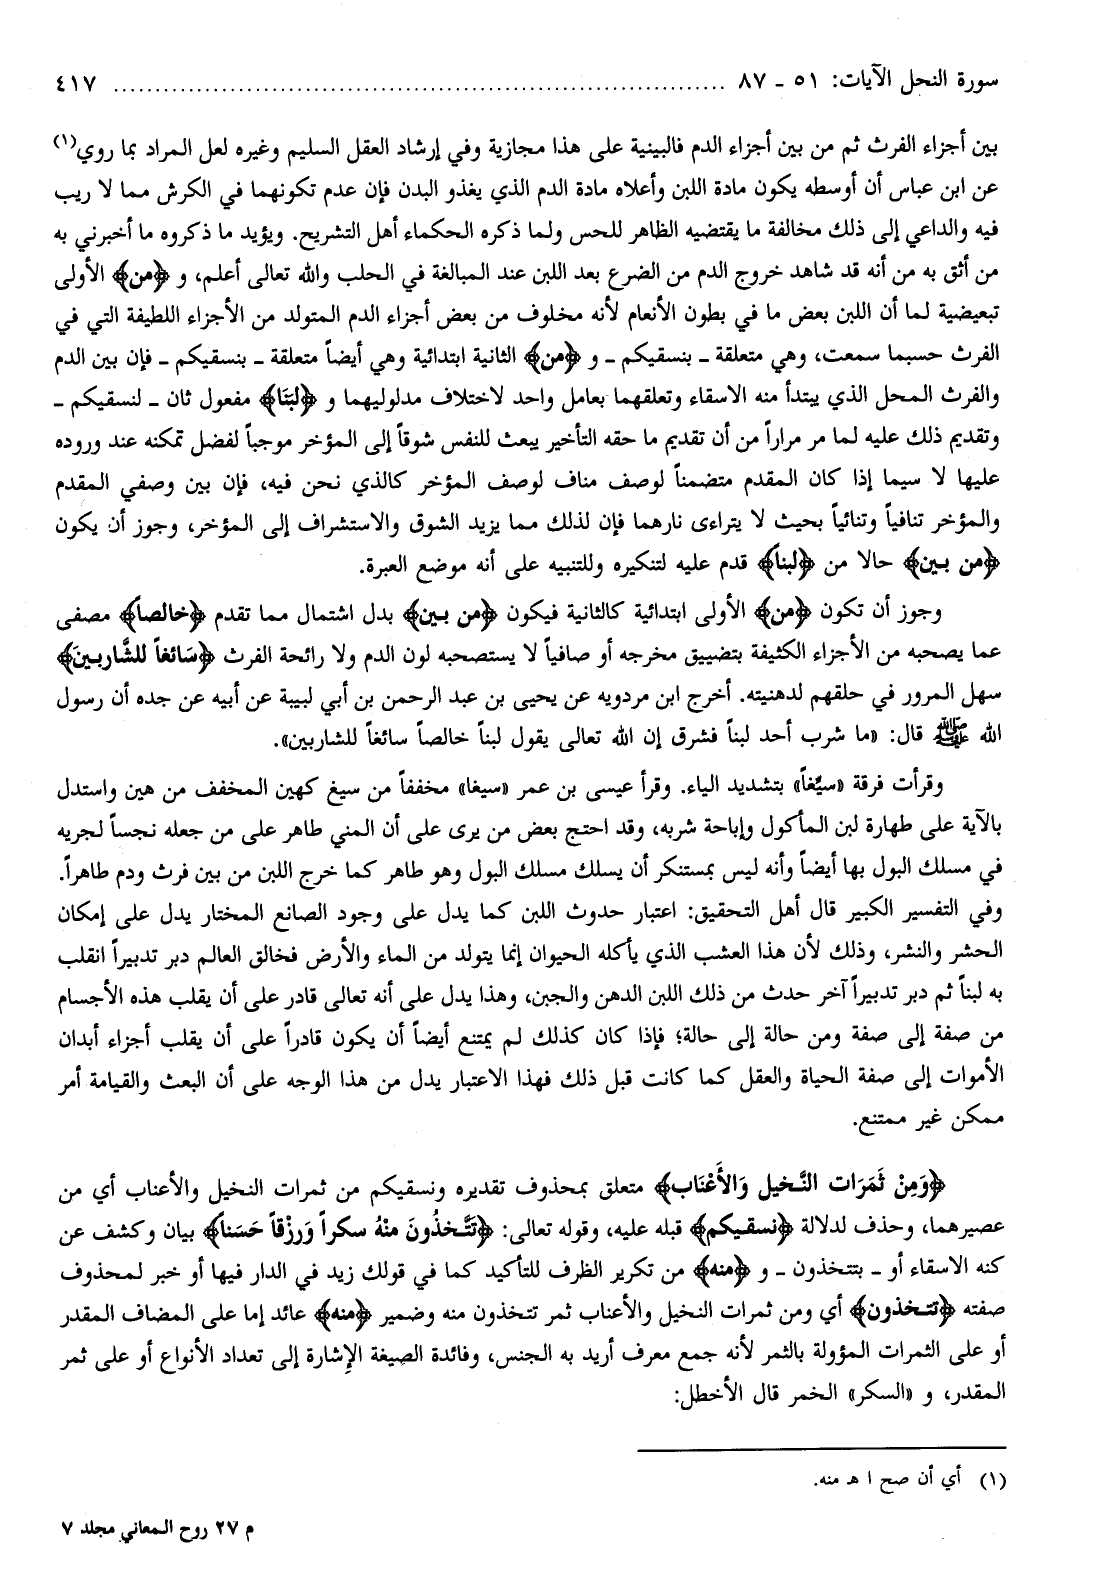 سورة النحل الآيات: ٥١ ـ ٨٧ ........................................................................ ٤١٧
بين أجزاء الفرث ثم من بين أجزاء الدم فالبينية على هذا مجازية وفي إرشاد العقل السليم وغيره لعل المراد بما روي(١)
عن ابن عباس أن أوسطه يكون مادة اللبن وأعلاه مادة الدم الذي يغذو البدن فإن عدم تكونهما في الكرش مما لا ريب
فيه والداعي إلى ذلك مخالفة ما يقتضيه الظاهر للحس ولما ذكره الحكماء أهل التشريح. ويؤيد ما ذكروه ما أخبرني به
من أثق به من أنه قد شاهد خروج الدم من الضرع بعد اللبن عند المبالغة في الحلب والله تعالى أعلم، و ﴿من﴾ الأولى
تبعيضية لما أن اللبن بعض ما في بطون الأنعام لأنه مخلوف من بعض أجزاء الدم المتولد من الأجزاء اللطيفة التي في
الفرث حسبما سمعت، وهي متعلقة ـ بنسقيكم ـ و ﴿من﴾ الثانية ابتدائية وهي أيضاً متعلقة ـ بنسقيكم ـ فإن بين الدم
والفرث المحل الذي يبتدأ منه الاسقاء وتعلقهما بعامل واحد لاختلاف مدلوليهما و ﴿لبَنَا﴾ مفعول ثان ـ لنسقيكم ـ
وتقديم ذلك عليه لما مر مراراً من أن تقديم ما حقه التأخير يبعث للنفس شوقاً إلى المؤخر موجباً لفضل تمكنه عند وروده
عليها لا سيما إذا كان المقدم متضمناً لوصف مناف لوصف المؤخر كالذي نحن فيه، فإن بين وصفي المقدم
والمؤخر تنافياً وتنائياً بحيث لا يتراءى نارهما فإن لذلك مما يزيد الشوق والاستشراف إلى المؤخر، وجوز أن يكون
﴿من بين﴾ حالا من ﴿لبنا﴾ قدم عليه لتنكيره وللتنبيه على أنه موضع العبرة.
وجوز أن تكون ﴿من﴾ الأولى ابتدائية كالثانية فيكون ﴿من بين﴾ بدل اشتمال مما تقدم ﴿خالصاً﴾ مصفى
عما يصحبه من الأجزاء الكثيفة بتضييق مخرجه أو صافياً لا يستصحبه لون الدم ولا رائحة الفرث ﴿سَائغاً للشَّاربينَ﴾
سهل المرور في حلقهم لدهنيته. أخرج ابن مردويه عن يحيى بن عبد الرحمن بن أبي لبيبة عن أبيه عن جده أن رسول
الله ﷺ قال: «ما شرب أحد لبناً فشرق إن الله تعالى يقول لبناً خالصاً سائغاً للشاربين».
وقرأت فرقة «سيِّغاً» بتشديد الياء. وقرأ عيسى بن عمر «سيغا» مخففاً من سيغ كهين المخفف من هين واستدل
بالآية على طهارة لبن المأكول وإباحة شربه، وقد احتج بعض من يرى على أن المني طاهر على من جعله نجساً لجريه
في مسلك البول بها أيضاً وأنه ليس بمستنكر أن يسلك مسلك البول وهو طاهر كما خرج اللبن من بين فرث ودم طاهراً.
وفي التفسير الكبير قال أهل التحقيق: اعتبار حدوث اللبن كما يدل على وجود الصانع المختار يدل على إمكان
الحشر والنشر، وذلك لأن هذا العشب الذي يأكله الحيوان إنما يتولد من الماء والأرض فخالق العالم دبر تدبيراً انقلب
به لبناً ثم دبر تدبيراً آخر حدث من ذلك اللبن الدهن والجبن، وهذا يدل على أنه تعالى قادر على أن يقلب هذه الأجسام
من صفة إلى صفة ومن حالة إلى حالة؛ فإذا كان كذلك لم يمتنع أيضاً أن يكون قادراً على أن يقلب أجزاء أبدان
الأموات إلى صفة الحياة والعقل كما كانت قبل ذلك فهذا الاعتبار يدل من هذا الوجه على أن البعث والقيامة أمر
ممكن غير ممتنع.
﴿وَمِنْ ثَمَرَات النَّخيل وَالأَعْنَاب﴾ متعلق بمحذوف تقديره ونسقيكم من ثمرات النخيل والأعناب أي من
عصيرهما، وحذف لدلالة ﴿نسقيكم﴾ قبله عليه، وقوله تعالى: ﴿تَتَّخذُونَ منْهُ سكراً وَرزْقاً حَسَناً﴾ بيان وكشف عن
كنه الاسقاء أو ـ بتتخذون ـ و ﴿منه﴾ من تكرير الظرف للتأكيد كما في قولك زيد في الدار فيها أو خبر لمحذوف
صفته ﴿تتخذون﴾ أي ومن ثمرات النخيل والأعناب ثمر تتخذون منه وضمير ﴿منه﴾ عائد إما على المضاف المقدر
أو على الثمرات المؤولة بالثمر لأنه جمع معرف أريد به الجنس، وفائدة الصيغة الإشارة إلى تعداد الأنواع أو على ثمر
المقدر، و «السكر» الخمر قال الأخطل:
(١) أي أن صح ا هـ منه.
م ٢٧ روح المعاني مجلد ٧